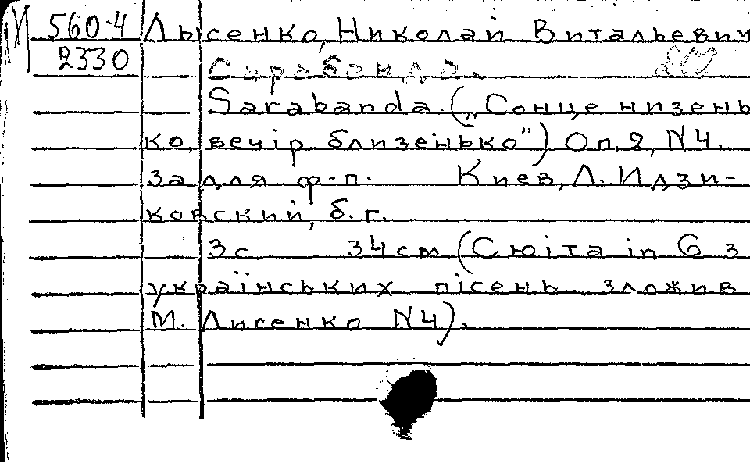 М 560-4 Лысенко, Николай Витальевич
2330 Сарабанда.
Sarabanda. („Сонце низень
ко, вечір близенько") Оп. 2, N4.
За для ф-п. Киев, Л. Идзи-
ковский, б. г.
3с 34см (Сюіта in G з
українських пісень зложив
М. Лисенко N4).